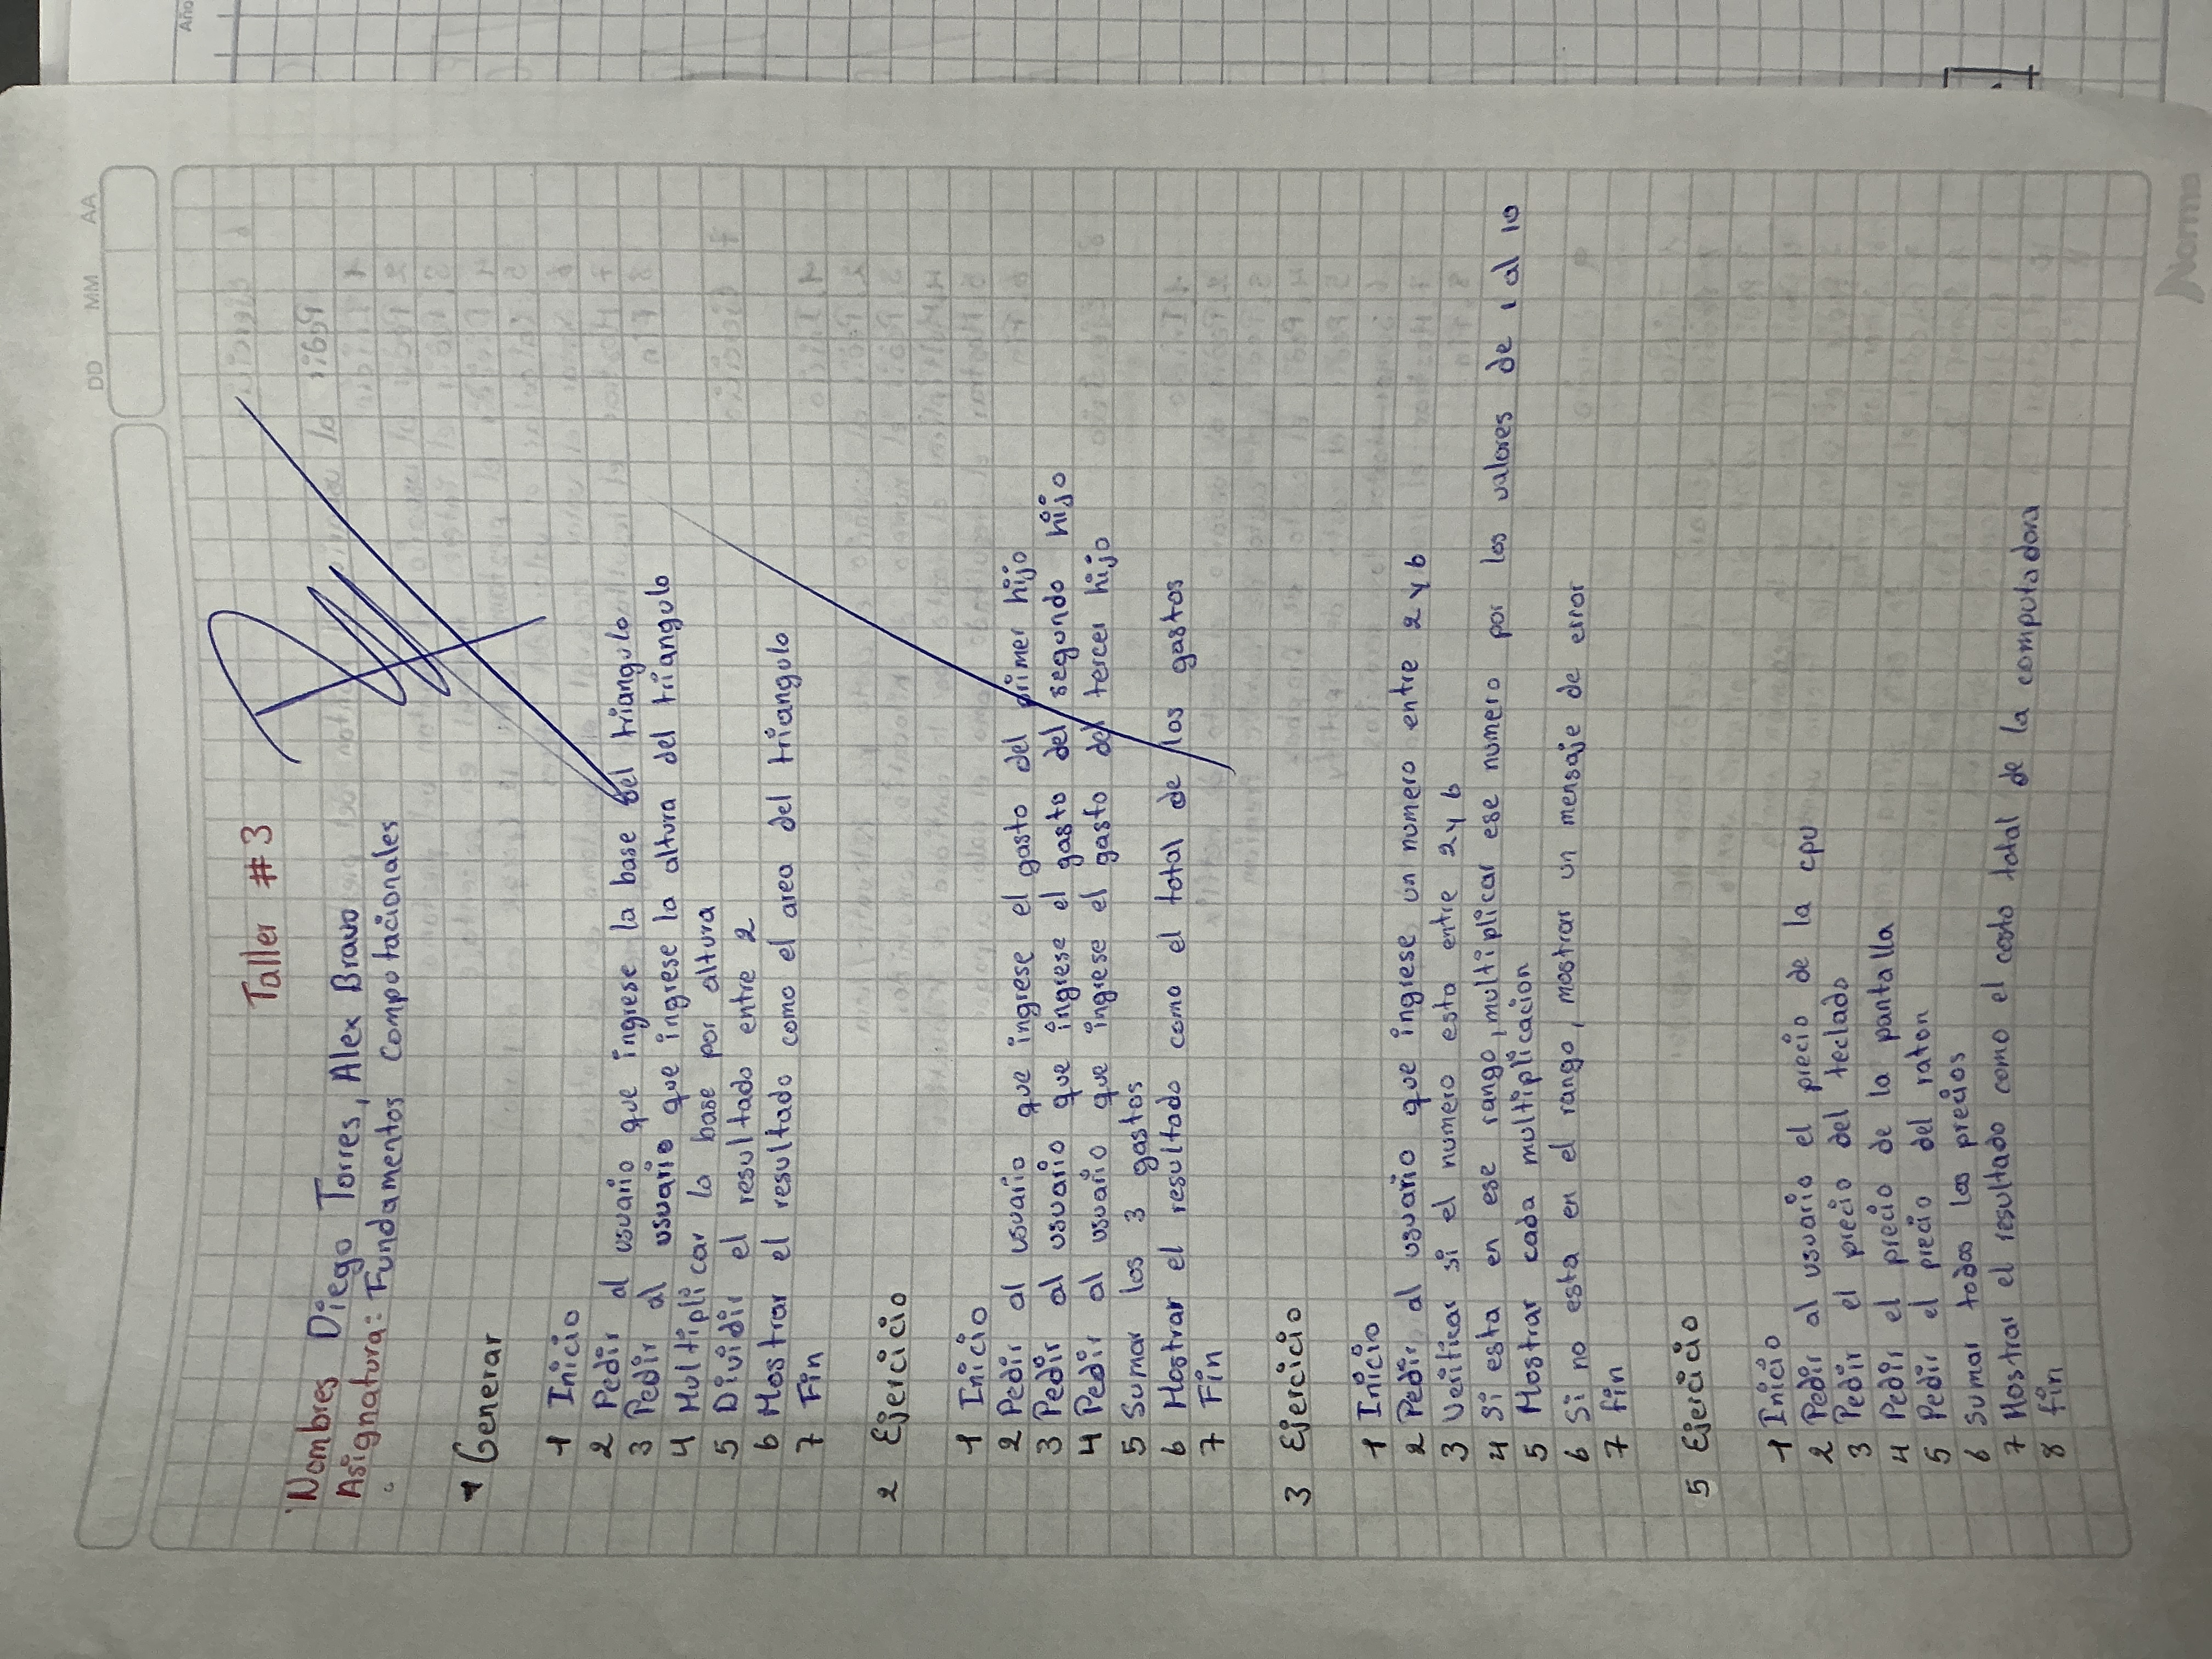 Año
DD MM AA
Taller #3
Nombres Diego Torres, Alex Bravo
Asignatura: Fundamentos Computacionales
1 Generar
1 Inicio
2 Pedir al usuario que ingrese la base del triangulo
3 Pedir al usuario que ingrese la altura del triangulo
4 Multiplicar la base por altura
5 Dividir el resultado entre 2
6 Mostrar el resultado como el area del triangulo
7 Fin
2 Ejercicio
1 Inicio
2 Pedir al usuario que ingrese el gasto del primer hijo
3 Pedir al usuario que ingrese el gasto del segundo hijo
4 Pedir al usuario que ingrese el gasto del tercer hijo
5 Sumar los 3 gastos
6 Mostrar el resultado como el total de los gastos
7 Fin
3 Ejercicio
1 Inicio
2 Pedir al usuario que ingrese un numero entre 2 y 6
3 Verificar si el numero esta entre 2 y 6
4 Si esta en ese rango, multiplicar ese numero por los valores de 1 al 10
5 Mostrar cada multiplicacion
6 Si no esta en el rango, mostrar un mensaje de error
7 fin
5 Ejercicio
1 Inicio
2 Pedir al usuario el precio de la cpu
3 Pedir el precio del teclado
4 Pedir el precio de la pantalla
5 Pedir el precio del raton
6 Sumar todos los precios
7 Mostrar el resultado como el costo total de la computadora
8 fin
Norma